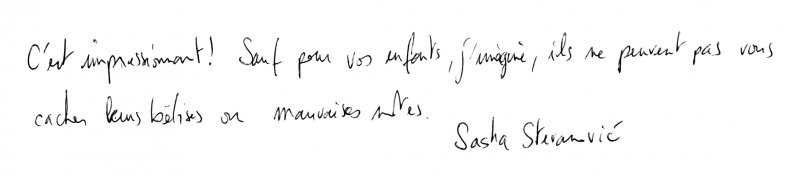 C'est impressionnant! Sauf pour vos enfants, j'imagine, ils ne peuvent pas vous
cacher leurs bêtises ou mauvaises notes.
Sasha Stevanović